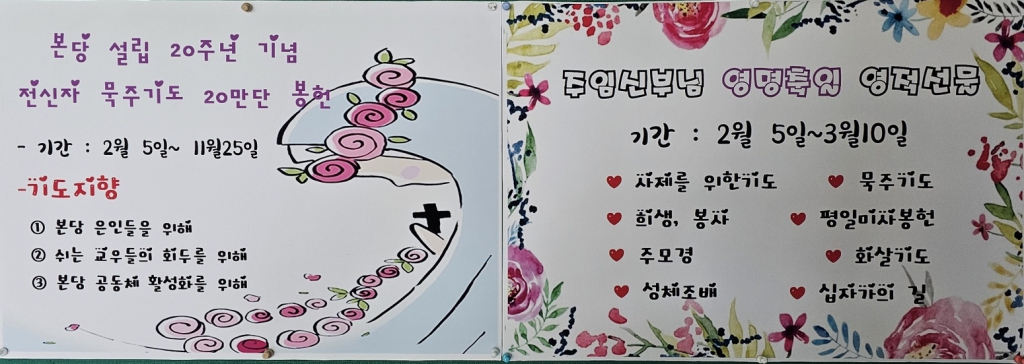 본당 설립 20주년 기념
전신자 묵주기도 20만단 봉헌
- 기간 : 2월 5일~ 11월25일
-기도지향
① 본당 은인들을 위해
② 쉬는 교우들의 회두를 위해
③ 본당 공동체 활성화를 위해
주임신부님 영명축일 영적선물
기간 : 2월 5일~3월10일
사제를 위한기도
묵주기도
희생, 봉사
평일미사봉헌
주모경
화살기도
성체조배
십자가의 길